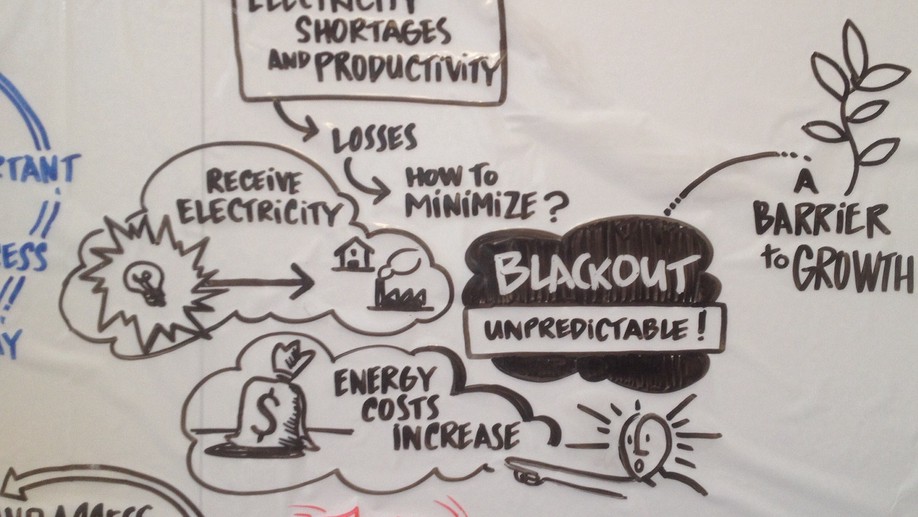 ELECTRICITY
SHORTAGES
AND PRODUCTIVITY
LOSSES
HOW TO
MINIMIZE?
RECEIVE
ELECTRICITY
BLACKOUT
UNPREDICTABLE!
A
BARRIER
to GROWTH
ENERGY
COSTS
INCREASE
$
RTANT
ESS
AY
AND ACCESS